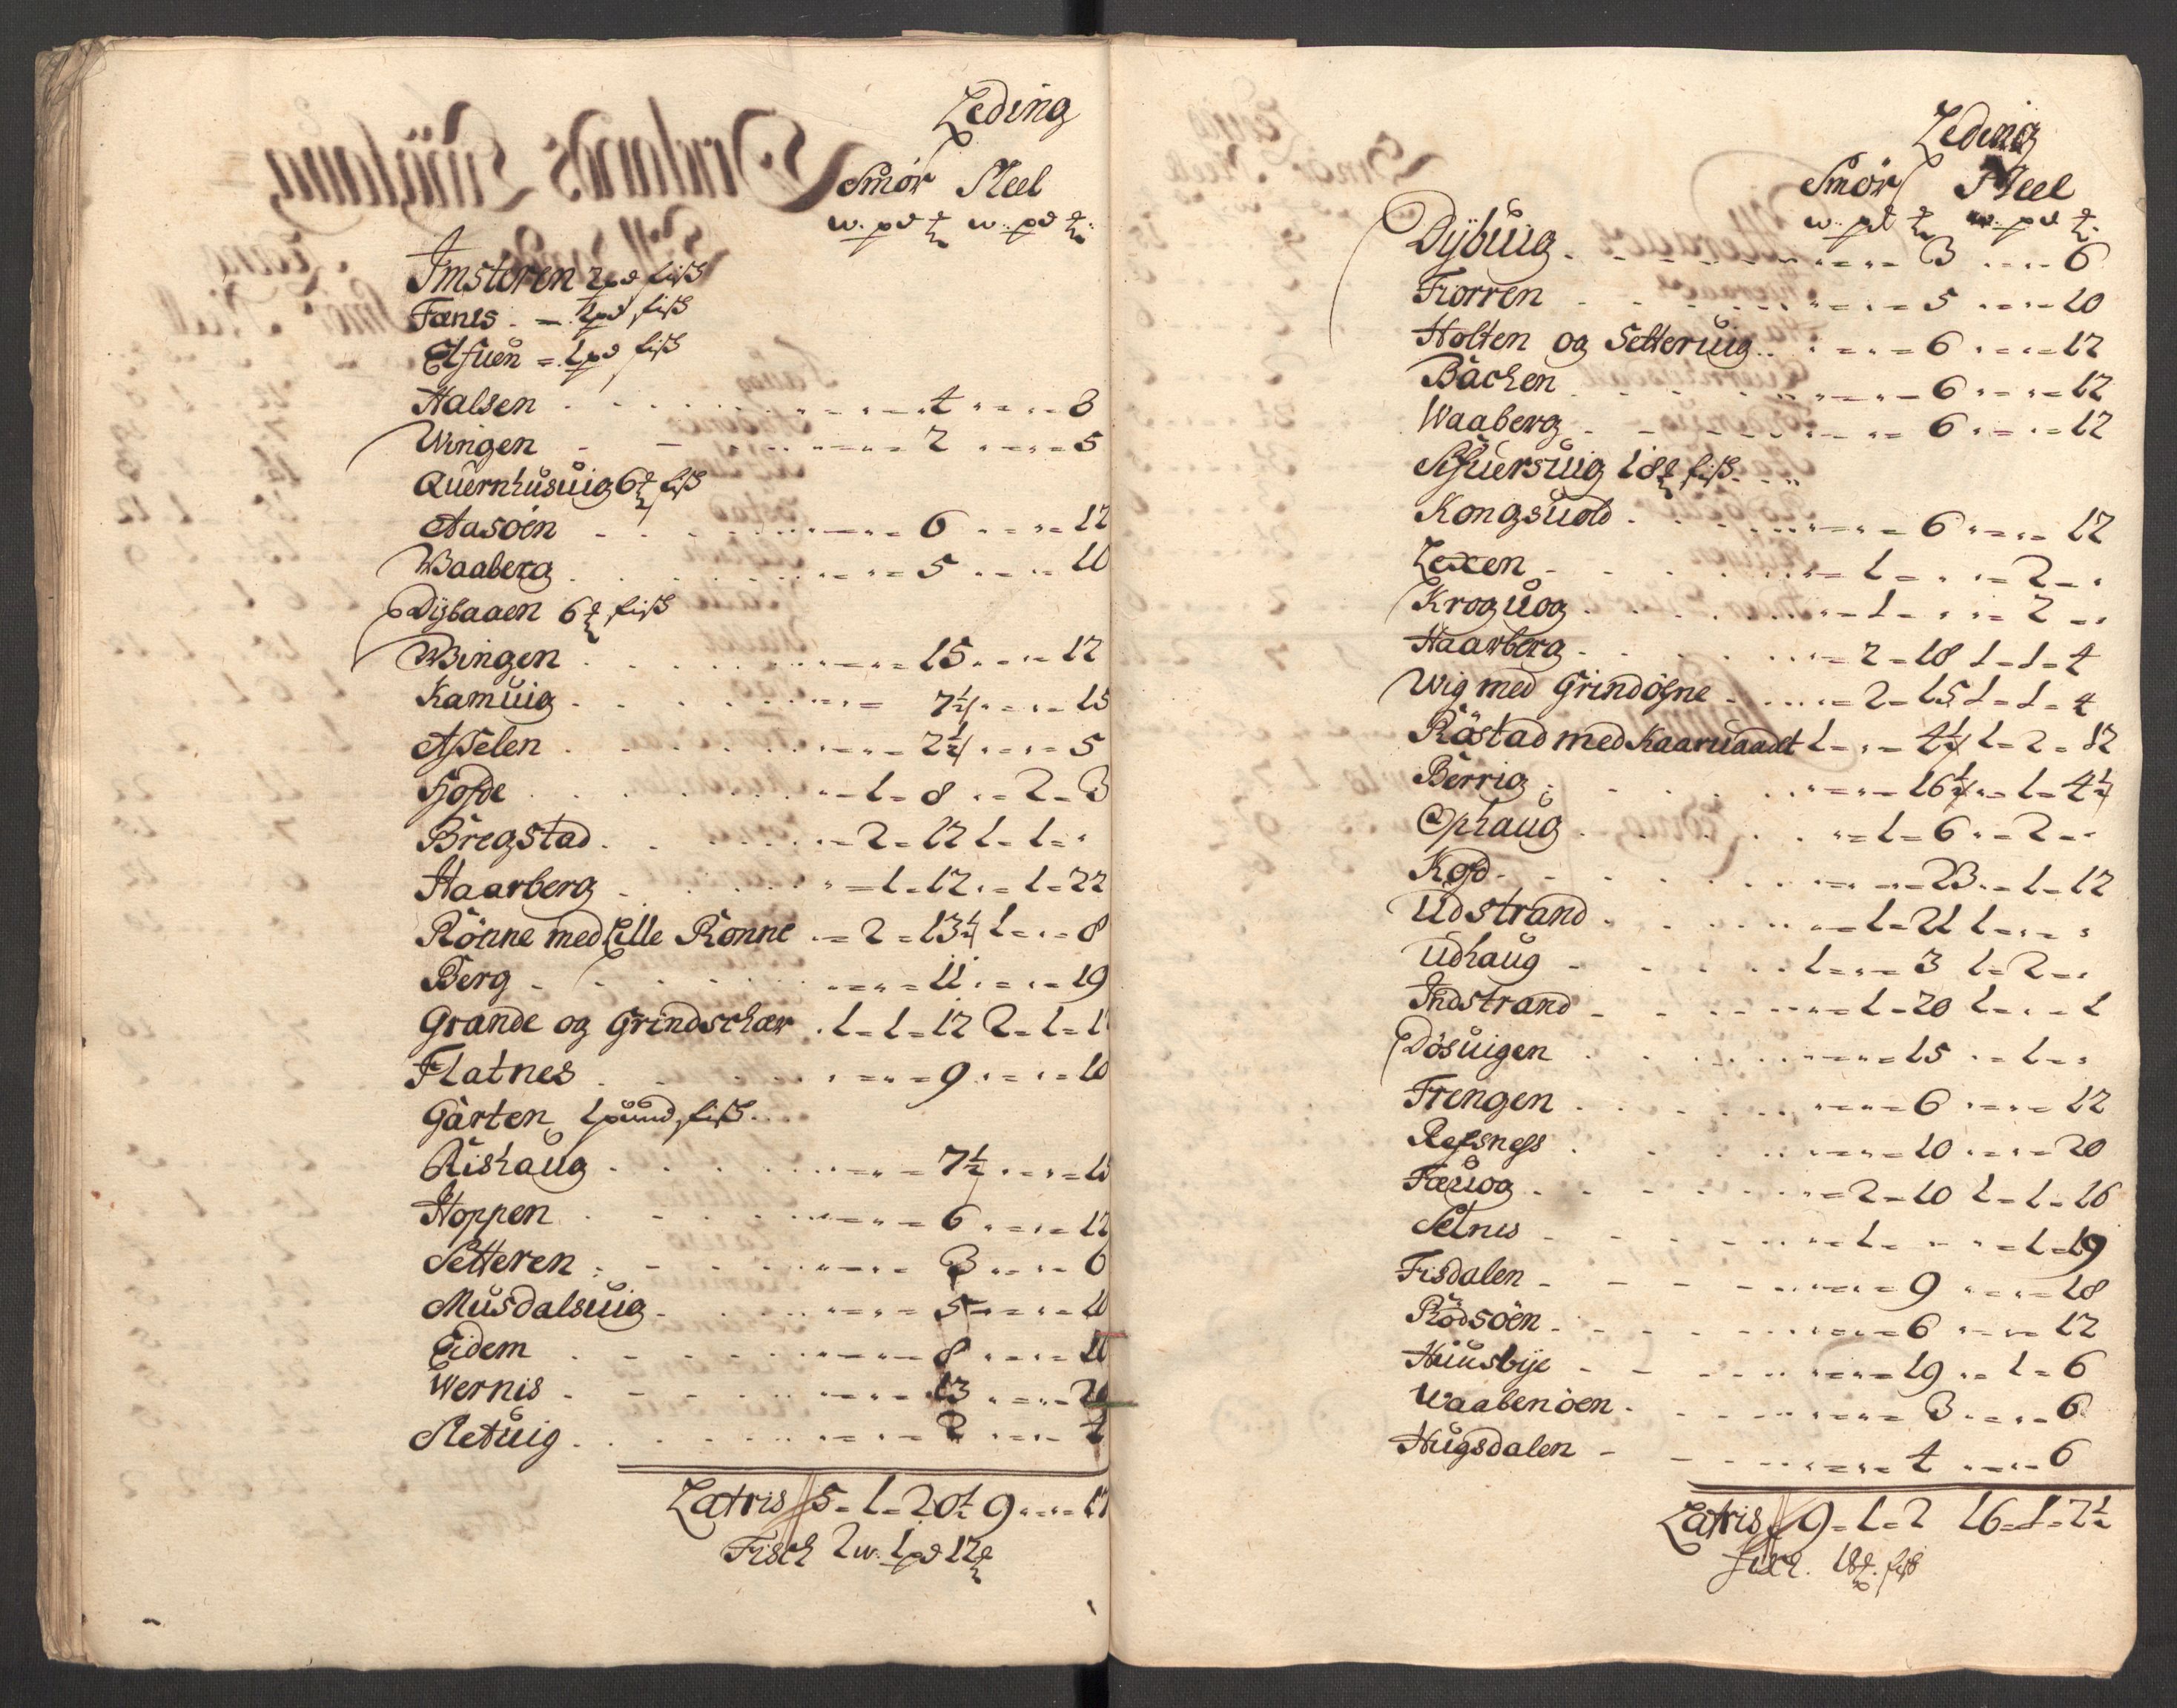 Leding
Smör Meel
w. pd ℔ w. pd ℔
Imsteren 2 pd fisk
Fænes - 1 pd fisk
Elfuen = 1 pd fisk
Halsen 4 8
Wingen 2 5
Quernhusuig 6 ℔ fisk
Aasöen 6 12
Waaberg 5 10
Dybaaen 6 ℔ fisk
Wingen 15 12
Kamuig 7½ 15
Asselen 2½ 5
Hofde 1 = 8 2 = 3
Bregstad 2 = 12 1 = 1 =
Haarberg 1 = 12 1 = 22
Rönne med Lille Rönne 2 = 13½ 1 = 8
Berg 11 19
Grande og Grindschær 1 = 1 = 12 2 = 1 =
Flatnes 9 10
Garten 1 pund fisk
Rishaug 7½ 15
Hoppen 6 12
Setteren 3 6
Musdalsuig 5 10
Eidem 8 10
Wernis 13 20
Sletuig 2 4
Latris 5 = 1 = 20½ 9 = 17
Fisch 2 w. 1 pd 12 ℔
Leding
Smör Meel
w. pd ℔ w. pd ℔
Dybuig 3 6
Fiorren 5 10
Holten og Setteruig 6 12
Bachen 6 12
Waaberg 6 12
Sifuersuig 18 ℔ fisk
Kongsuold 6 12
Lexen 1 = 2 =
Kroguog 1 = 2 =
Haarberg 2 = 18 1 = 1 = 4
Wig med Grindöfne 2 = 15 1 = 1 = 4
Råstad med Kaaruaadt 1 = 4½ 1 = 2 = 12
Berrig 16½ 1 = 4½
Ophaug 1 = 6 2 =
Kofd 23 1 = 12
Udstrand 1 = 21 1 =
Udhaug 1 = 3 1 = 2 =
Indstrand 1 = 20 1 = 1
Dösuigen 15 1 =
Frengen 6 12
Refsnefs 10 20
Fæuog 2 = 10 1 = 1 = 16
Selnes 1 = 1 = 19
Fisdalen 9 18
Rödsöen 6 12
Huusbye 19 1 = 6
Waabenöen 3 6
Hugsdalen 4 6
Latris 9 = 1 = 2 16 = 1 = 2½
fisch. 18 ℔. fisk